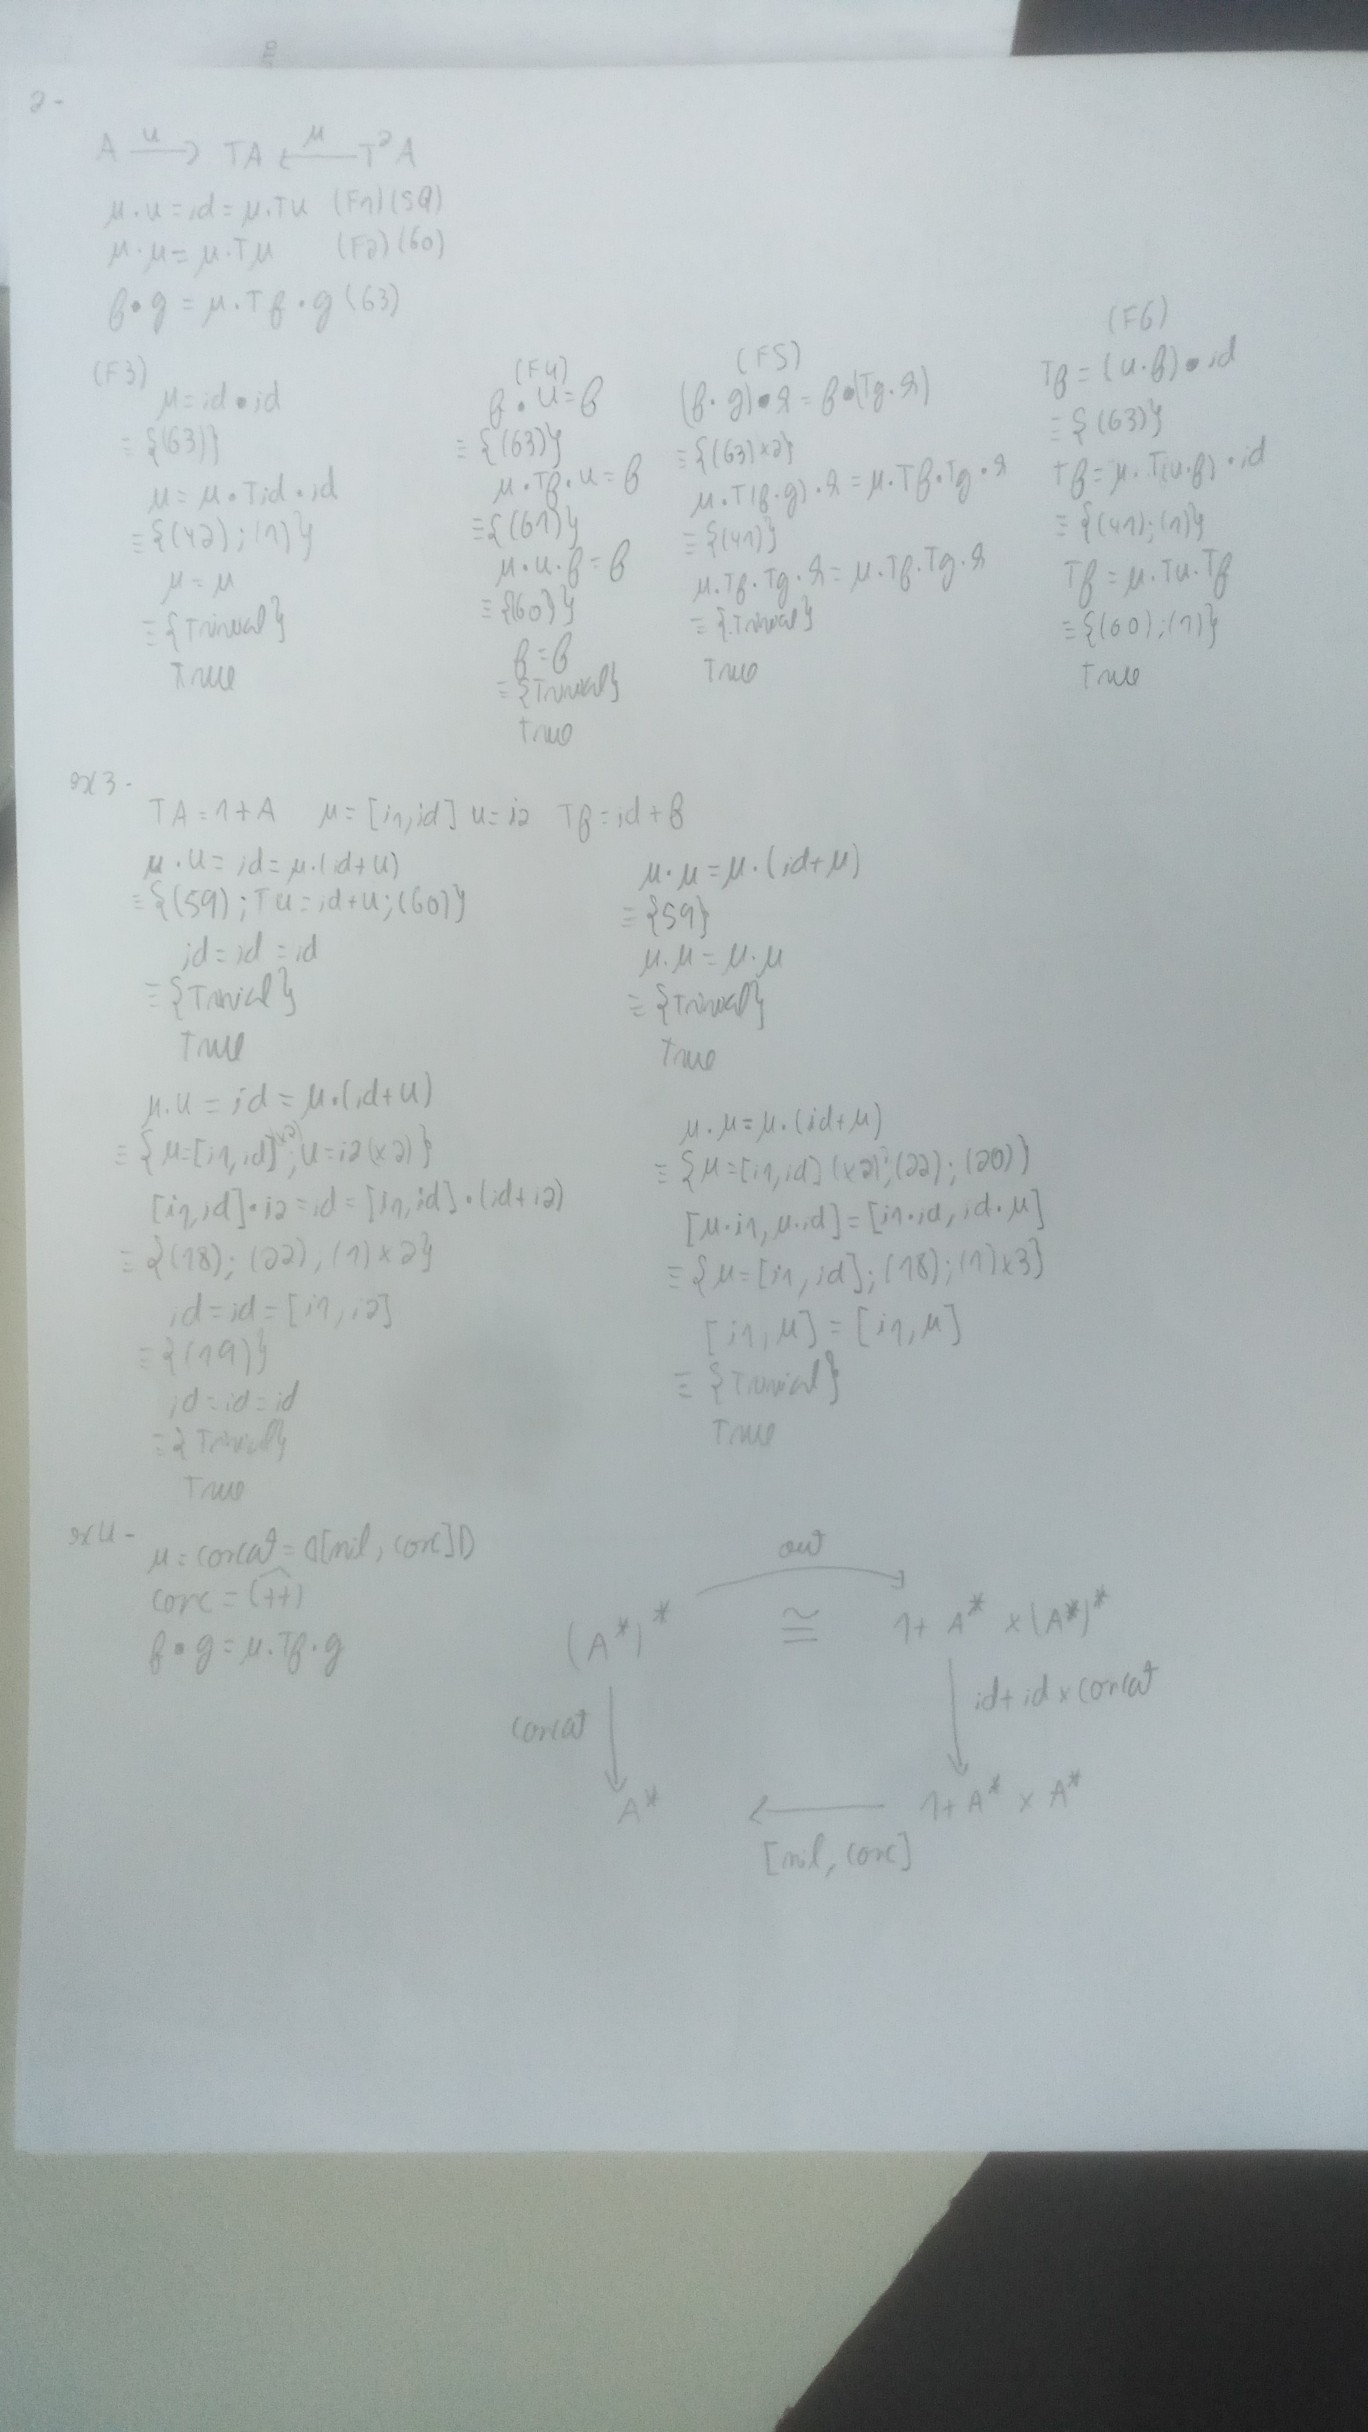 2-
A —u→ TA ←μ— T²A
μ·u = id = μ·Tu (F1) (59)
μ·μ = μ·Tμ (F2) (60)
f•g = μ·Tf·g (63)
(F3)
μ = id • id
≡ {(63)}
μ = μ·Tid·id
≡ {(42); (1)}
μ = μ
≡ {Trivial}
True
(F4)
f • u = f
≡ {(63)}
μ·Tf·u = f
≡ {(61)}
μ·u·f = f
≡ {(60)}
f = f
≡ {Trivial}
True
(F5)
(f·g)•h = f•(Tg·h)
≡ {(63)×2}
μ·T(f·g)·h = μ·Tf·Tg·h
≡ {(41)}
μ·Tf·Tg·h = μ·Tf·Tg·h
≡ {Trivial}
True
(F6)
Tf = (u·f) • id
≡ {(63)}
Tf = μ·T(u·f)·id
≡ {(41); (1)}
Tf = μ·Tu·Tf
≡ {(60); (1)}
True
ex3-
TA = 1+A μ = [i1, id] u = i2 Tf = id + f
μ·u = id = μ·(id+u)
≡ {(59); Tu = id+u; (60)}
id = id = id
≡ {Trivial}
True
μ·μ = μ·(id+μ)
≡ {59}
μ·μ = μ·μ
≡ {Trivial}
True
μ·u = id = μ·(id+u)
≡ {μ=[i1, id](×2); u=i2 (×2)}
[i1, id]·i2 = id = [i1, id]·(id+i2)
≡ {(18); (22), (1)×2}
id = id = [i1, i2]
≡ {(19)}
id = id = id
≡ {Trivial}
True
μ·μ = μ·(id+μ)
≡ {μ=[i1, id] (×2); (22); (20)}
[μ·i1, μ·id] = [i1·id, id·μ]
≡ {μ=[i1, id]; (18); (1)×3}
[i1, μ] = [i1, μ]
≡ {Trivial}
True
ex4-
μ = concat = ⦇[nil, conc]⦈
conc = (++)^
f • g = μ·Tf·g
out
(A*)* ≅ 1 + A* × (A*)*
concat
id + id × concat
A* ← 1 + A* × A*
[nil, conc]